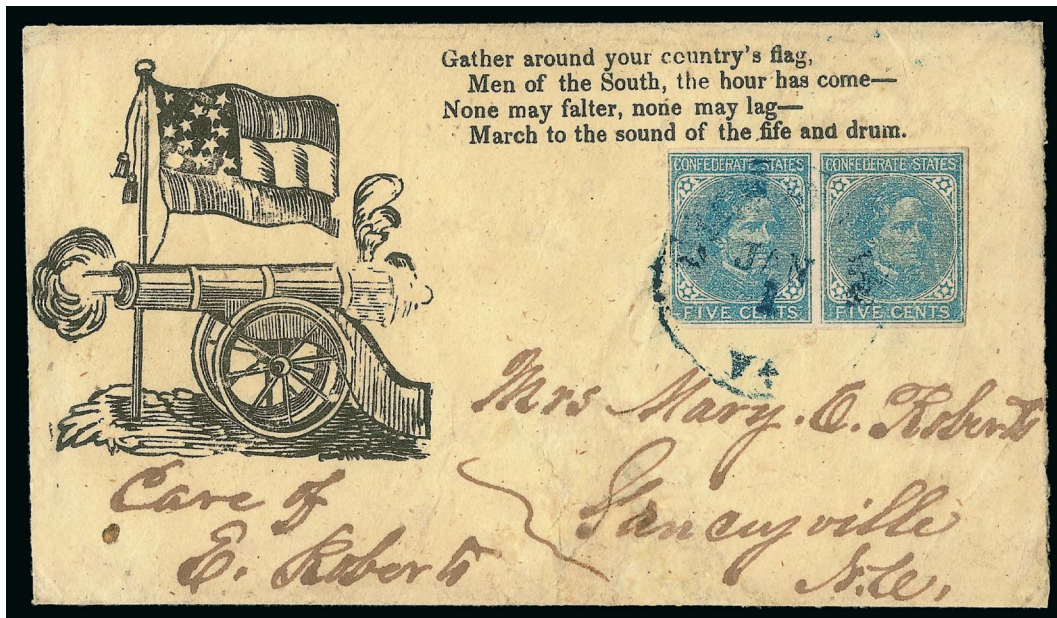 Gather around your country's flag,
Men of the South, the hour has come—
None may falter, none may lag—
March to the sound of the fife and drum.
CONFEDERATE STATES
CONFEDERATE STATES
JUN
1
FIVE CENTS
FIVE CENTS
VA
Mrs Mary. E. Roberts
Yanceyville
N.C.
Care of
E. Roberts